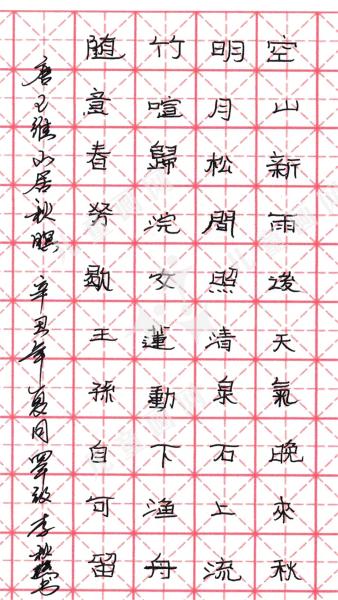 空山新雨後天氣晚來秋
明月松間照清泉石上流
竹喧歸浣女蓮動下渔舟
随意春芳歇王孫自可留
唐王維山居秋暝 辛丑年夏月 李秋 书